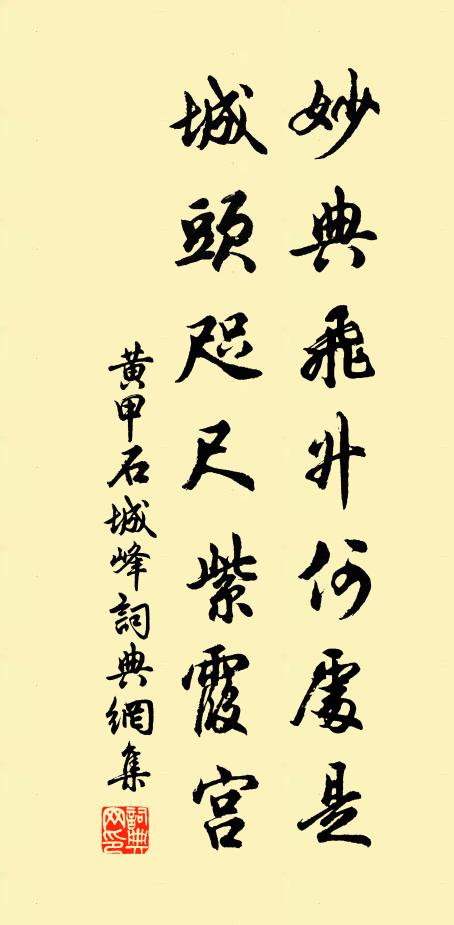 妙典飛升何處是
城頭咫尺紫霞宮
黃甲石城峰詞典網集
詞典
網印